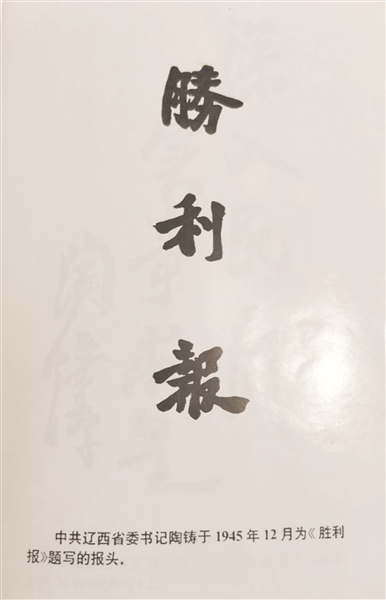 勝
利
報
中共辽西省委书记陶铸于1945年12月为《胜利
报》题写的报头。